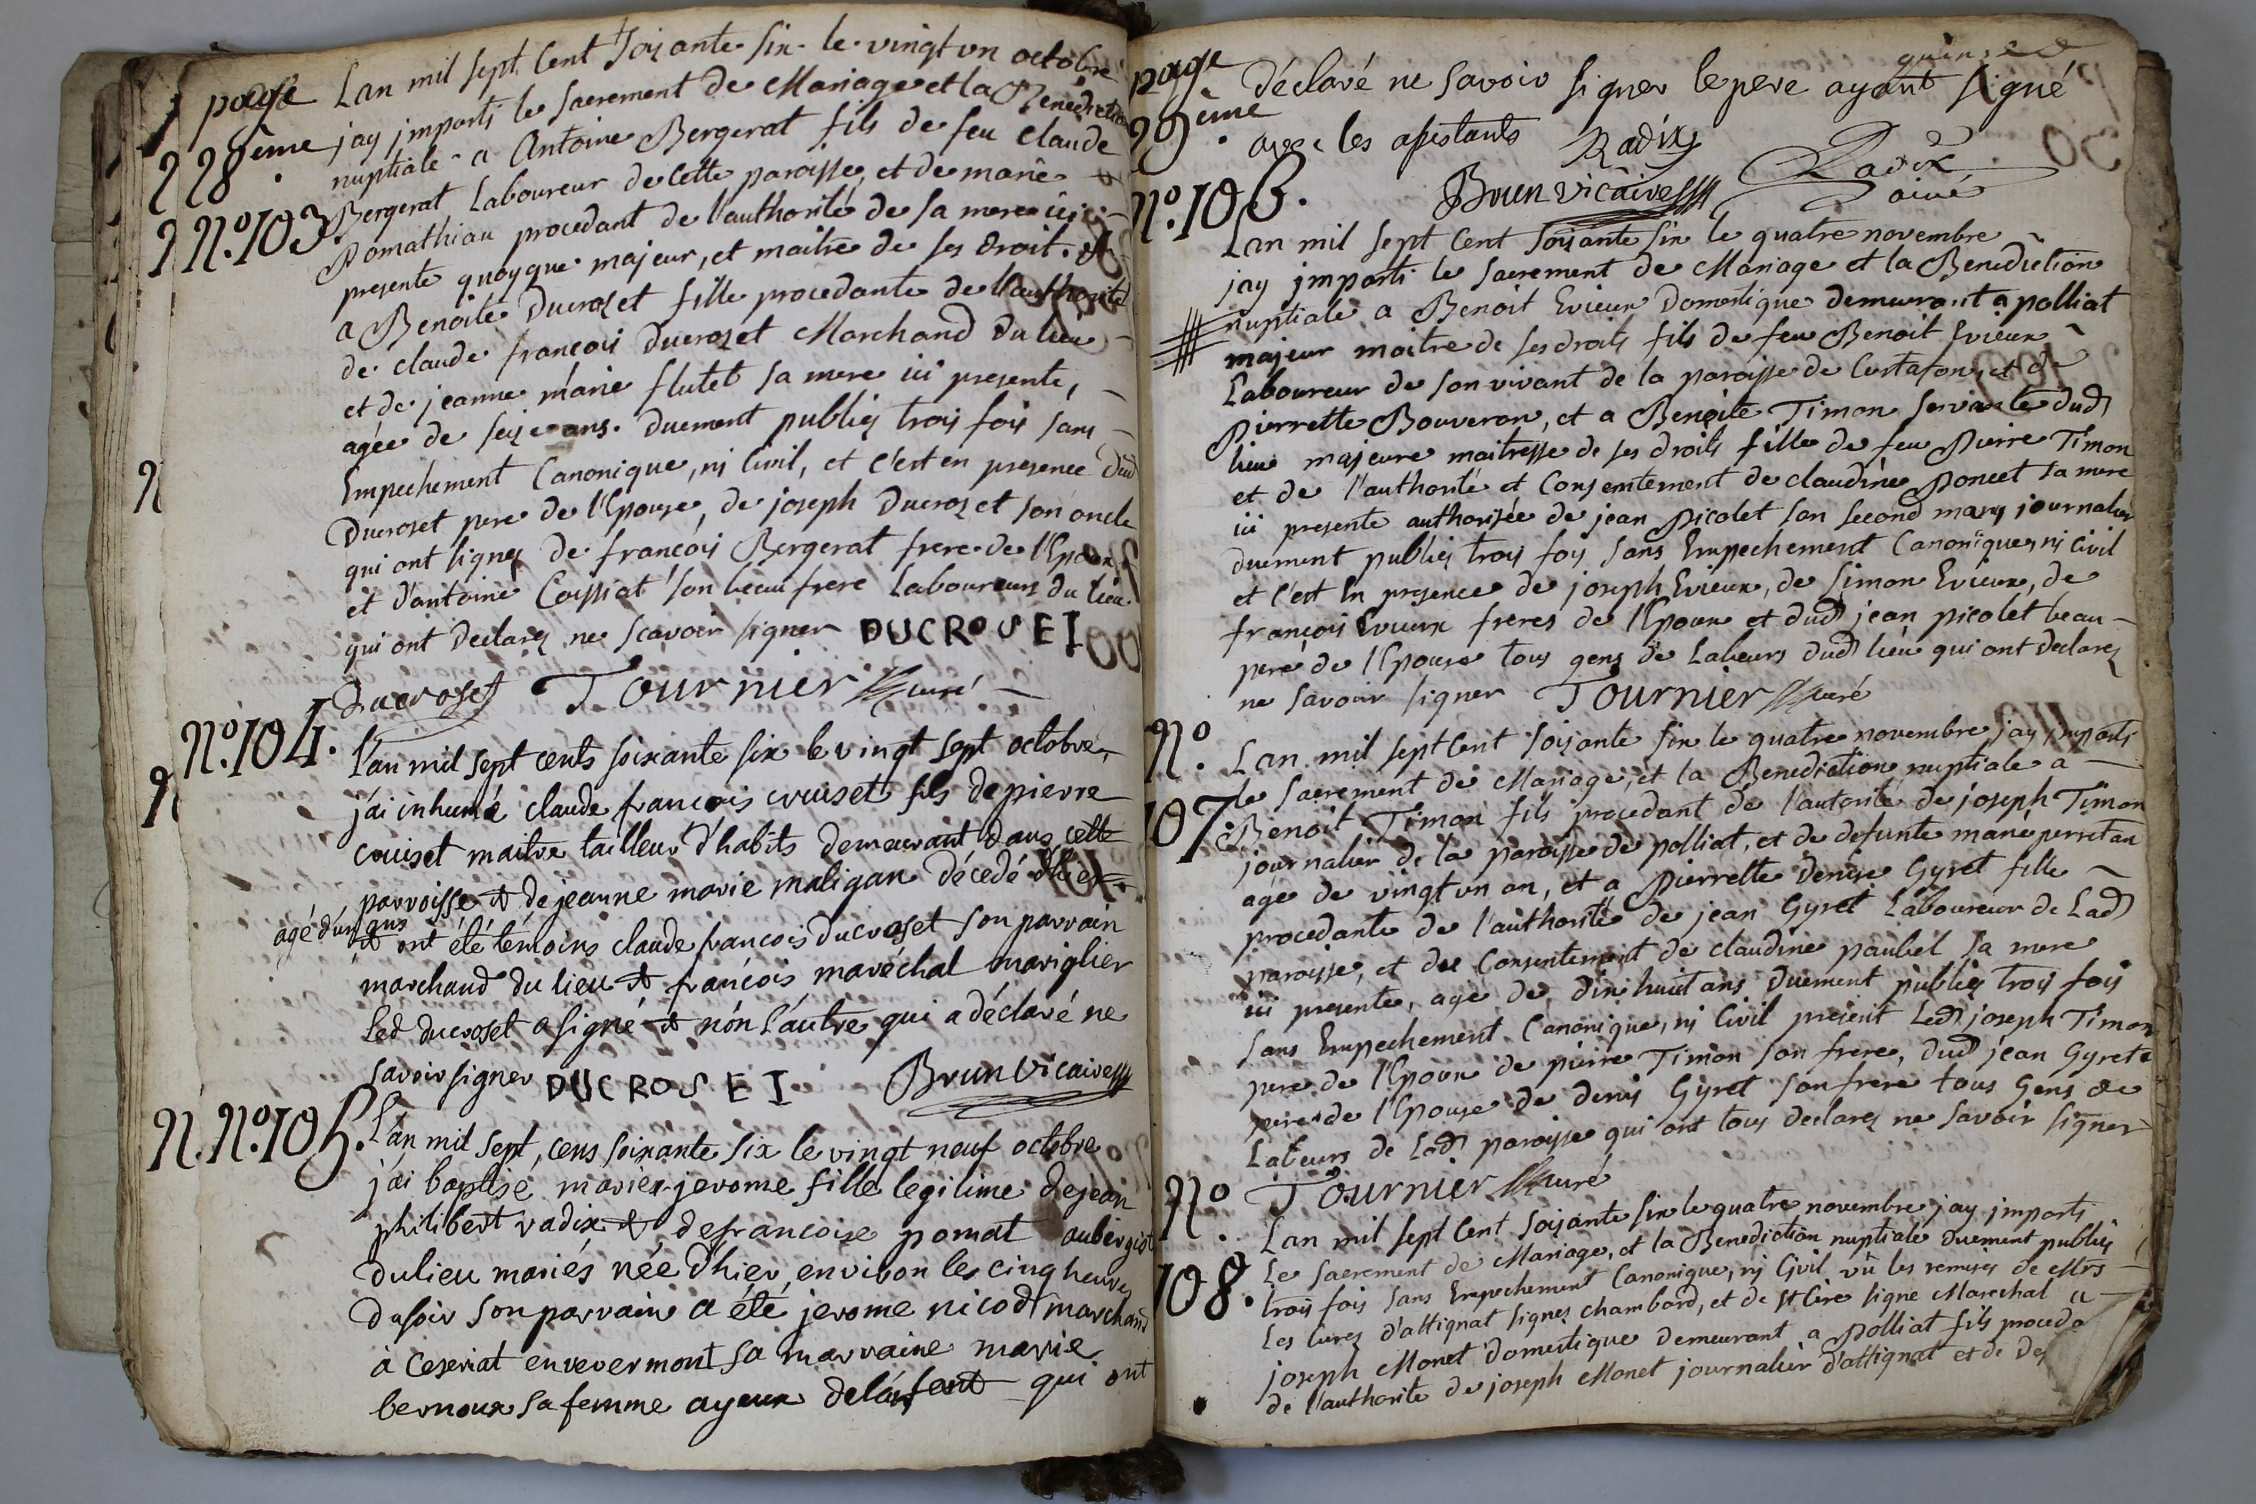 page
28ème
N.º 103.
Lan mil sept Cent soixante six le vingt un octobre
jay imparti le sacrement de Mariage et la Benediction
nuptiale a Antoine Bergerat fils de feu claude
Bergerat Laboureur de cette paroisse, et de marie
Pomathiau procedant de l'authorité de sa mere ici
presente quoyque majeur, et maitre de ses droit. et
a Benoite Ducroset fille procedante de l'authorité
de claude françois Ducroset Marchand du lieu
et de jeanne marie flutet sa mere ici presente,
agée de seize ans. Duement publiés trois fois sans
Empechement Canonique, ni Civil, et c'est en presence dud
Ducroset pere de l'Epouse, de joseph Ducroset son oncle
qui ont signés de françois Bergerat frere de l'Epoux
et d'antoine Coissiat son beau frere Laboureurs du lieu
qui ont Declarés ne scavoir signer DUCROSET
Ducroset Tournier curé
N.º 104.
L'an mil sept cents soixante six le vingt sept octobre
j'ai inhumé claude francois cruiset fils de pierre
cruiset maitre tailleur d'habits demeurant dans cette
parroisse & de jeanne marie maligan décedé d'hier
agé d'un ans
& ont été témoins claude francois ducroset son parrain
marchand du lieu & françois marechal mariglier
Led ducroset a signé & non l'autre qui a déclaré ne
savoir signer DUCROSET Brun vicaire
N. N.º 105.
L'an mil sept, cens soixante six le vingt neuf octobre
j'ai baptisé marie jerome fille legitime de jean
philibert radix & de francoise pomat aubergist
du lieu mariés née d'hier environ les cinq heures
du soir son parrain a été jerome nicod marchand
à ceseriat en revermont sa marraine marie
bernoux sa femme ayeux de l'enfent qui ont
page
29ème
déclaré ne savoir signer le pere ayant signé
avec les assistants Radix
Brun vicaire Radix
ainé
N.º 106.
Lan mil sept Cent soixante six le quatre novembre
jay imparti le sacrement de Mariage et la Benediction
nuptiale a Benoit Evieux Domestique demeurant a polliat
majeur maitre de ses droits fils de feu Benoit Evieux
Laboureur de son vivant de la paroisse de Curtafon, et de
Pierrette Bouveron, et a Benoite Timon servante dud
lieu majeure maitresse de ses droits fille de feu Pierre Timon
et de l'authorité et Consentement de claudine Poncet sa mere
ici presente authorisée de jean Picolet son second mary journalier
duement publiés trois fois sans Empechement Canonique, ni Civil
et c'est En presence de joseph Evieux, de Simon Evieux, de
françois Evieux freres de l'Epoux et dud jean picolet beau-
pere de l'Epouse tous gens de Labeurs dud lieu qui ont Declarés
ne savoir signer Tournier curé
N.º
107.
Lan mil sept Cent soixante six le quatre novembre jay imparti
le sacrement de Mariage, et la Benediction nuptiale a
Benoit Timon fils procedant de l'autorité de joseph Timon
journalier de la paroisse de polliat, et de defunte marie perretan
agé de vingt un an, et a Pierrette Denise Gyret fille
procedante de l'authorité de jean Gyret Laboureur de Lad
paroisse, et du Consentement de claudine paubel sa mere
ici presente, agé de dix huit ans Duement publiés trois fois
sans Empechement Canonique, ni Civil présent Led joseph Timon
pere de l'Epoux de pierre Timon son frere, dud jean Gyret
pere de l'Epouse de denis Gyret son frere tous Gens de
Labeurs de Lad paroisse qui ont tous declarés ne savoir signer
Tournier curé
N.º
108.
Lan mil sept Cent soixante six le quatre novembre jay imparti
Le sacrement de Mariage, et la Benediction nuptiale duement publiés
trois fois sans Empechement Canonique, ni Civil vû les remises de Mrs
Les curez d'attignat signez chambard, et de St Cire signe Marechal a
joseph Monet Domestique demeurant a Polliat fils proceda
de l'authorité de joseph Monet journalier d'attignat et de De